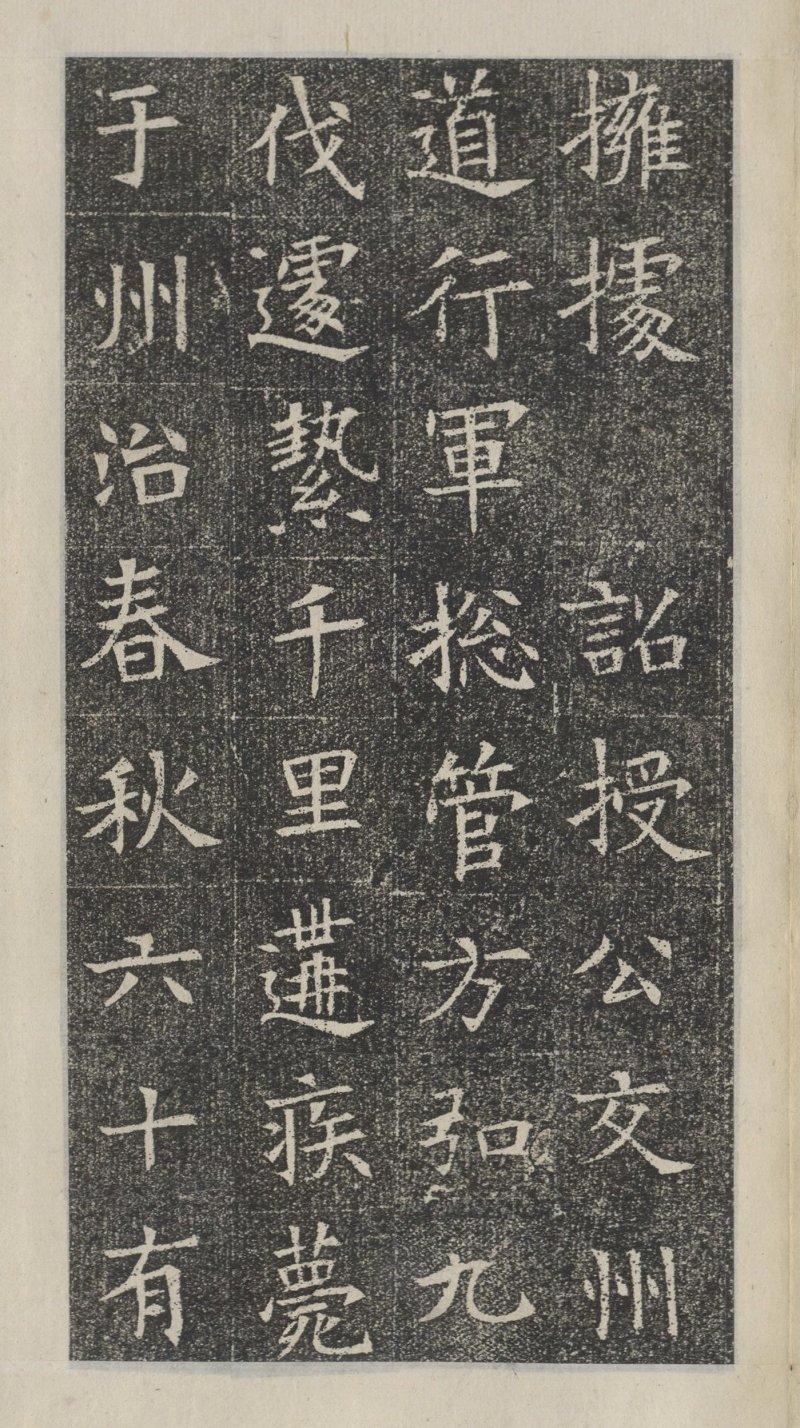 擁據詔授公交州
道行軍總管方弘九
伐遽縶千里遘疾薨
于州治春秋六十有